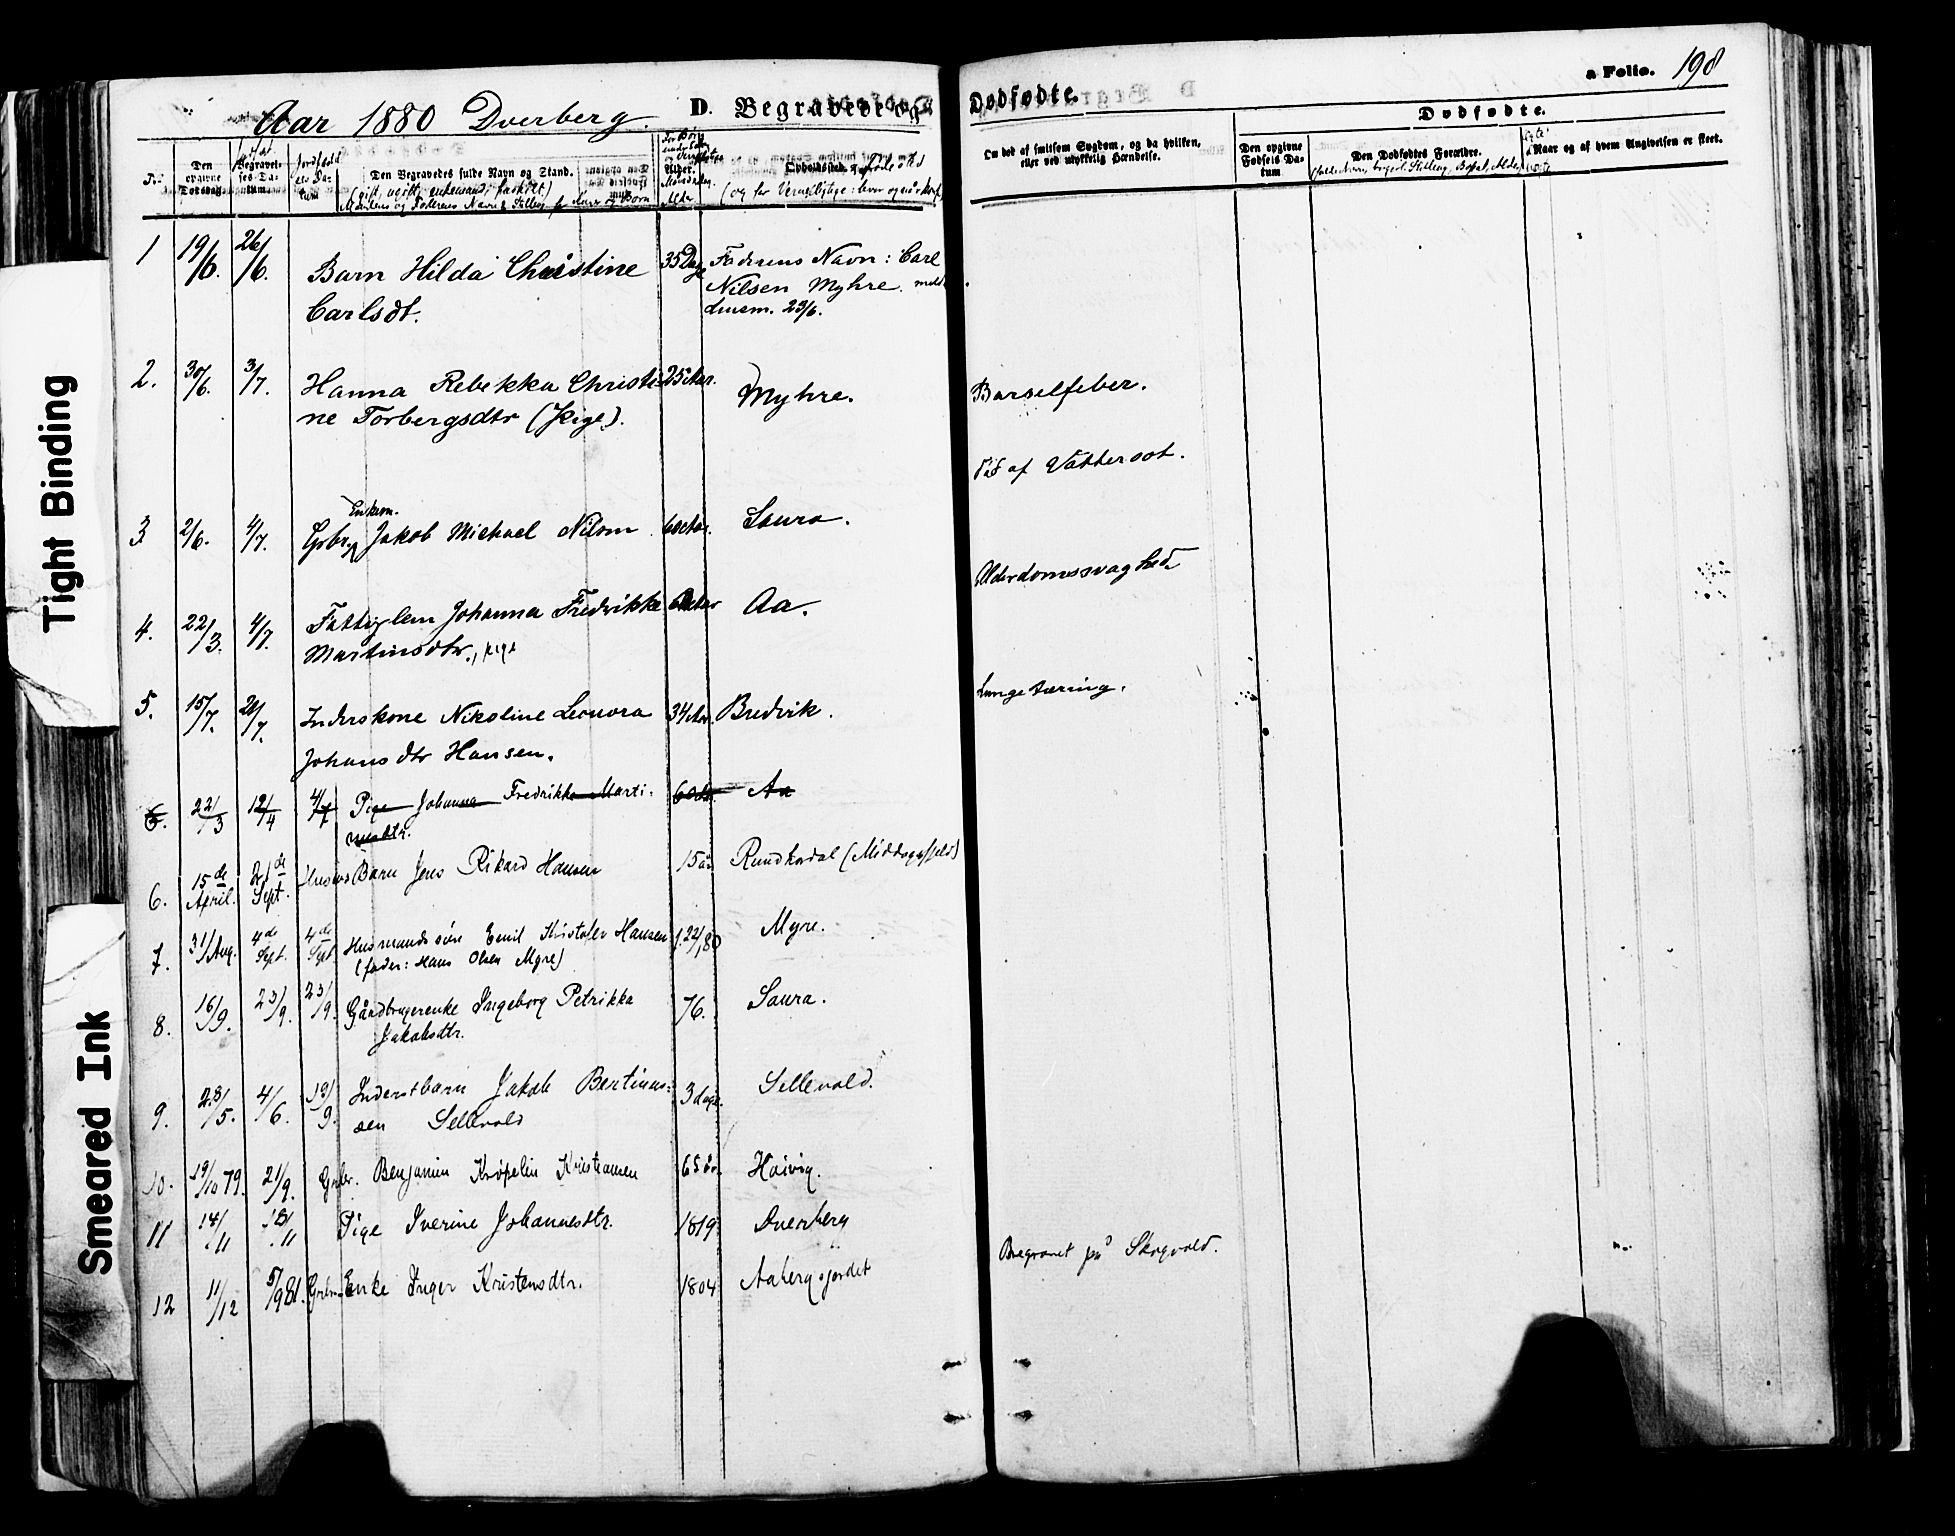 Tight Binding
Smeared Ink
Aar 1880 Dverberg.
D. Begravede og Dødfødte.
a Folio. 198
Dødfødte.
Den opgivne Dødsdag.
Begravelses-Datum.
Jordfæstelses Datum
Den Begravedes fulde Navn og Stand.
(gift, ugift, enkemand, fraskilt)
Opholdssted.
Om død af smitsom Sygdom, og da hvilken,
eller ved ulykkelig Hændelse.
Den opgivne Fødsels Datum.
Den Dødfødtes Forældre.
Naar og af hvem Angivelsen er skeet.
1 19/6. 26/6. Barn Hilda Christine 35 Dage Faderens Navn: Carl
Carlsdt. Nilsen Myhre.
23/6.
2. 30/6. 3/7. Hanna Rebekka Christi- 25 Aar. Myhre. Barselfeber.
ne Torbergsdtr (Pige).
Død af Vattersot.
Enkem.
3 2/6. 4/7. Grbr. Jakob Michael Nilsen 60 Aar. Saura.
Alderdomssvaghed
4. 22/3. 4/7. Fattiglem Johanna Fredrikke Aa.
Martinsdtr., pige
5. 15/7. 20/7. Inderskone Nikoline Leonora 34 Aar. Bredvik. Lungetæring.
Johansdtr Hansen.
6. 22/3 12/4 4/7 Pige Johanna Fredrikke Marti- 60 Aa
nusdtr.
6. 15de April. 21de Sept. Husmds Barn Jens Rikard Hansen 15 år (Middagsfjeld)
7. 31/Aug. 4de Sept. 4de Sept Husmandssøn Emil Kristofer Hansen 1 22/80 Myre.
(fader: Hans Olsen Myre)
8. 16/9. 23/9. 23/9. Gårdbrugerenke Ingeborg Petrikka 76. Saura.
Jakobsdtr.
9. 28/5. 4/6. 19/9. Inderstbarn Jakob Bertinus- 3 dage. Sellevold.
sen Sellevold
10. 19/10 79. 21/9. Grbr. Benjamin Krøpelin Kristiansen 65 år. Haivig.
11 14/11 18/11 Pige Iverine Johannesdtr. 1819 Dverberg
12 11/12 5/9 81. Grbr.- Enke Inger Kristensdtr. 1804 Aabergsjordet Begravet på Skogvold.